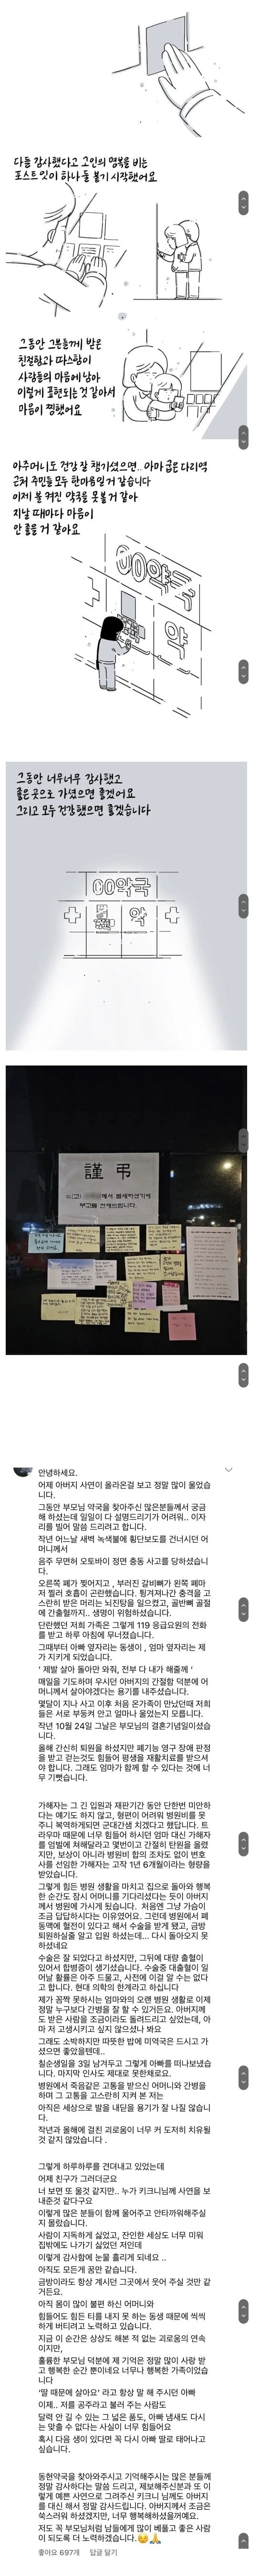 다들 감사했다고 고인의 명복을 비는
포스트잇이 하나 둘 붙기 시작했어요
그동안 그분들께 받은
친절함과 따스함이
사람들의 마음에 남아
이렇게 표현되는 것 같아서
마음이 찡했어요
아주머니도 건강 잘 챙기셨으면.. 아마 굽은다리역
근처 주민들 모두 한마음일 거 같습니다
이제 불 켜진 약국을 못볼 거 같아
지날 때마다 마음이
안 좋을 거 같아요
00약국
약
그동안 너무너무 감사했고
좋은 곳으로 가셨으면 좋겠어요
그리고 모두 건강했으면 좋겠습니다
00약국
약
謹 弔
께서 별세하셨기에
부고를 전해드립니다.
안녕하세요.
어제 아버지 사연이 올라온걸 보고 정말 많이 울었습
니다.
그동안 부모님 약국을 찾아주신 많은분들께서 궁금
해 하셨는데 일일이 다 설명드리기가 어려워.. 이자
리를 빌어 말씀 드리려고 합니다.
작년 어느날 새벽 녹색불에 횡단보도를 건너시던 어
머니께서
음주 무면허 오토바이 정면 충동 사고를 당하셨습니
다.
오른쪽 폐가 찢어지고 , 부러진 갈비뼈가 왼쪽 폐마
저 찔러 호흡이 곤란했습니다. 튕겨져나간 충격을 고
스란히 받은 머리는 뇌진탕을 일으켰고, 골반뼈 골절
에 간출혈까지.. 생명이 위험하셨습니다.
단란했던 저희 가족은 그렇게 119 응급요원의 전화
를 받고 하루 아침에 무너졌습니다.
그때부터 아빠 옆자리는 동생이 , 엄마 옆자리는 제
가 지키게 되었습니다.
‘ 제발 살아 돌아만 와줘, 전부 다 내가 해줄께 ’
매일을 기도하며 우시던 아버지의 간절함 덕분에 어
머니께서 살아야겠다는 용기를 내주셨습니다.
몇달이 지나 사고 이후 처음 온가족이 만났던때 저희
들은 서로 부둥켜 안고 얼마나 울었는지 모릅니다.
작년 10월 24일 그날은 부모님의 결혼기념일이셨습
니다.
올해 간신히 퇴원을 하셨지만 폐기능 영구 장애 판정
을 받고 걷는것도 힘들어 평생을 재활치료를 받으셔
야 합니다. 그래도 엄마가 함께 할 수 있다는 것에 너
무 기뻤습니다.
가해자는 그 긴 입원과 재판기간 동안 단한번 미안하
다는 얘기도 하지 않고, 형편이 어려워 병원비를 못
주니 복역하게되면 군대간샘 치겠다고 했답니다. 트
라우마 때문에 너무 힘들어 하시던 엄마 대신 가해자
를 엄벌에 처해달라고 몇번이고 간절히 탄원을 올렸
지만, 보상이 아니라 병원비 합의 조차도 없이 변호
사를 선임한 가해자는 고작 1년 6개월이라는 형량을
받았습니다.
그렇게 힘든 병원 생활을 마치고 집으로 돌아와 행복
한 순간도 잠시 어머니를 기다리셨다는 듯이 아버지
께서 병원에 가시게 됬습니다. 처음엔 그냥 가슴이
조금 답답하시다는 이유였어요. 그런데 병원에서 폐
동맥에 혈전이 있다고 해서 수술을 받게 됐고, 금방
퇴원하실줄 알고 입원 하셨는데... 다시 돌아오지 못
하셨네요
수술은 잘 되었다고 하셨지만, 그뒤에 대량 출혈이
있어서 합병증이 생기셨습니다. 수술중 대출혈이 일
어날 활률은 아주 드물고, 사전에 이걸 알 수는 없다
고 합니다. 현대 의학의 한계라고 하십니다
제가 꼼짝 못하시는 엄마와의 오랜 병원 생활로 이제
정말 누구보다 간병을 잘 할 수 있거든요. 아버지께
도 받은 사람을 조금이라도 돌려드리고 싶었는데, 아
마 저 고생시키고 싶지 않으셨나 봐요
그래도 소박하지만 따뜻한 밥에 미역국은 드시고 가
셨으면 좋았을텐데..
칠순생일을 3일 남겨두고 그렇게 아빠를 떠나보냈습
니다. 마지막 인사도 제대로 못한채로요.
병원에서 죽음같은 고통을 받으신 어머니와 간병을
하며 그 고통을 고스란히 지켜 본 저는
아직은 세상으로 발을 내딛을 용기가 잘 나질 않습니
다.
작년과 올해에 걸친 괴로움이 너무 커 도저히 치유될
것 같지 않았습니다 .
그렇게 하루하루를 견뎌내고 있었는데
어제 친구가 그러더군요
너 보면 또 울것 같지만.. 누가 키크니님께 사연을 보
내준것 같다구요
이렇게 많은 분들이 함께 울어주고 안타까워해주실
지 몰랐습니다.
사람이 지독하게 싫었고, 잔인한 세상도 너무 미워
집밖에도 나가기 싫었던 저인데
이렇게 감사함에 눈물 흘리게 되네요 ..
아직도 모든게 꿈만 같습니다.
금방이라도 항상 계시던 그곳에서 웃어 주실 것만 같
거든요.
아직 몸이 많이 불편 하신 어머니와
힘들어도 힘든 티를 내지 못 하는 동생 때문에 씩씩
하게 버티려고 노력하고 있습니다.
지금 이 순간은 상상도 해본 적 없는 괴로움의 연속
이지만,
훌륭한 부모님 덕분에 제 기억은 정말 많이 사랑 받
고 행복한 순간 뿐이네요 너무나 행복한 가족이었습
니다
‘딸 때문에 살아요’ 라고 항상 말 해 주시던 아빠
이제.. 저를 공주라고 불러 주는 사람도
달려 안길 수 있는 그 넓은 품도, 아빠 냄새도 다시
는 맞출 수 없다는 사실이 너무 힘들어요
혹시 다음 생이 있다면 꼭 다시 아빠 딸로 태어나고
싶습니다.
동현약국을 찾아와주시고 기억해주시는 많은 분들께
정말 감사하다는 말씀 드리고, 제보해주신분과 또 이
렇게 예쁜 사연으로 그려주신 키크니 님께도 아버지
를 대신 해서 정말 감사드립니다. 아버지께서 조금은
쑥스러워 하셨겠지만, 너무 행복해하셨을꺼예요.
저도 꼭 부모님처럼 남들에게 많이 베풀고 좋은 사람
이 되도록 더 노력하겠습니다.🥹🙏
좋아요 697개 답글 달기